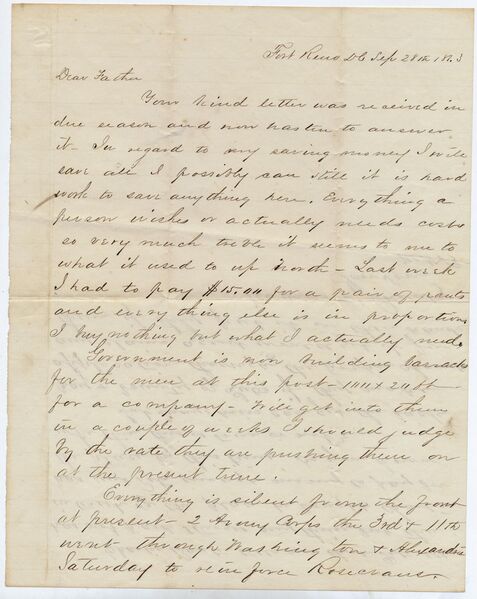 Fort Reno D.C. Sep 28th 1863
Dear Father
Your kind letter was received in
due season and now hasten to answer
it - In regard to my saving money I will
save all I possibly can still it is hard
work to save anything here. Everything a
person wishes or actually needs costs
so very much treble it seems to me to
what it used to up north - Last week
I had to pay $15.00 for a pair of pants
and everything else is in proportion
I buy nothing but what I actually need.
Government is now building barracks
for the men at this post - 100 x 20 ft
for a company - Will get into them
in a couple of weeks I should judge
by the rate they are pushing them on
at the present time.
Everything is silent from the front
at present - 2 Army Corps the 3rd & 11th
went through Washington & Alexandria
Saturday to reinforce Rosecrans.